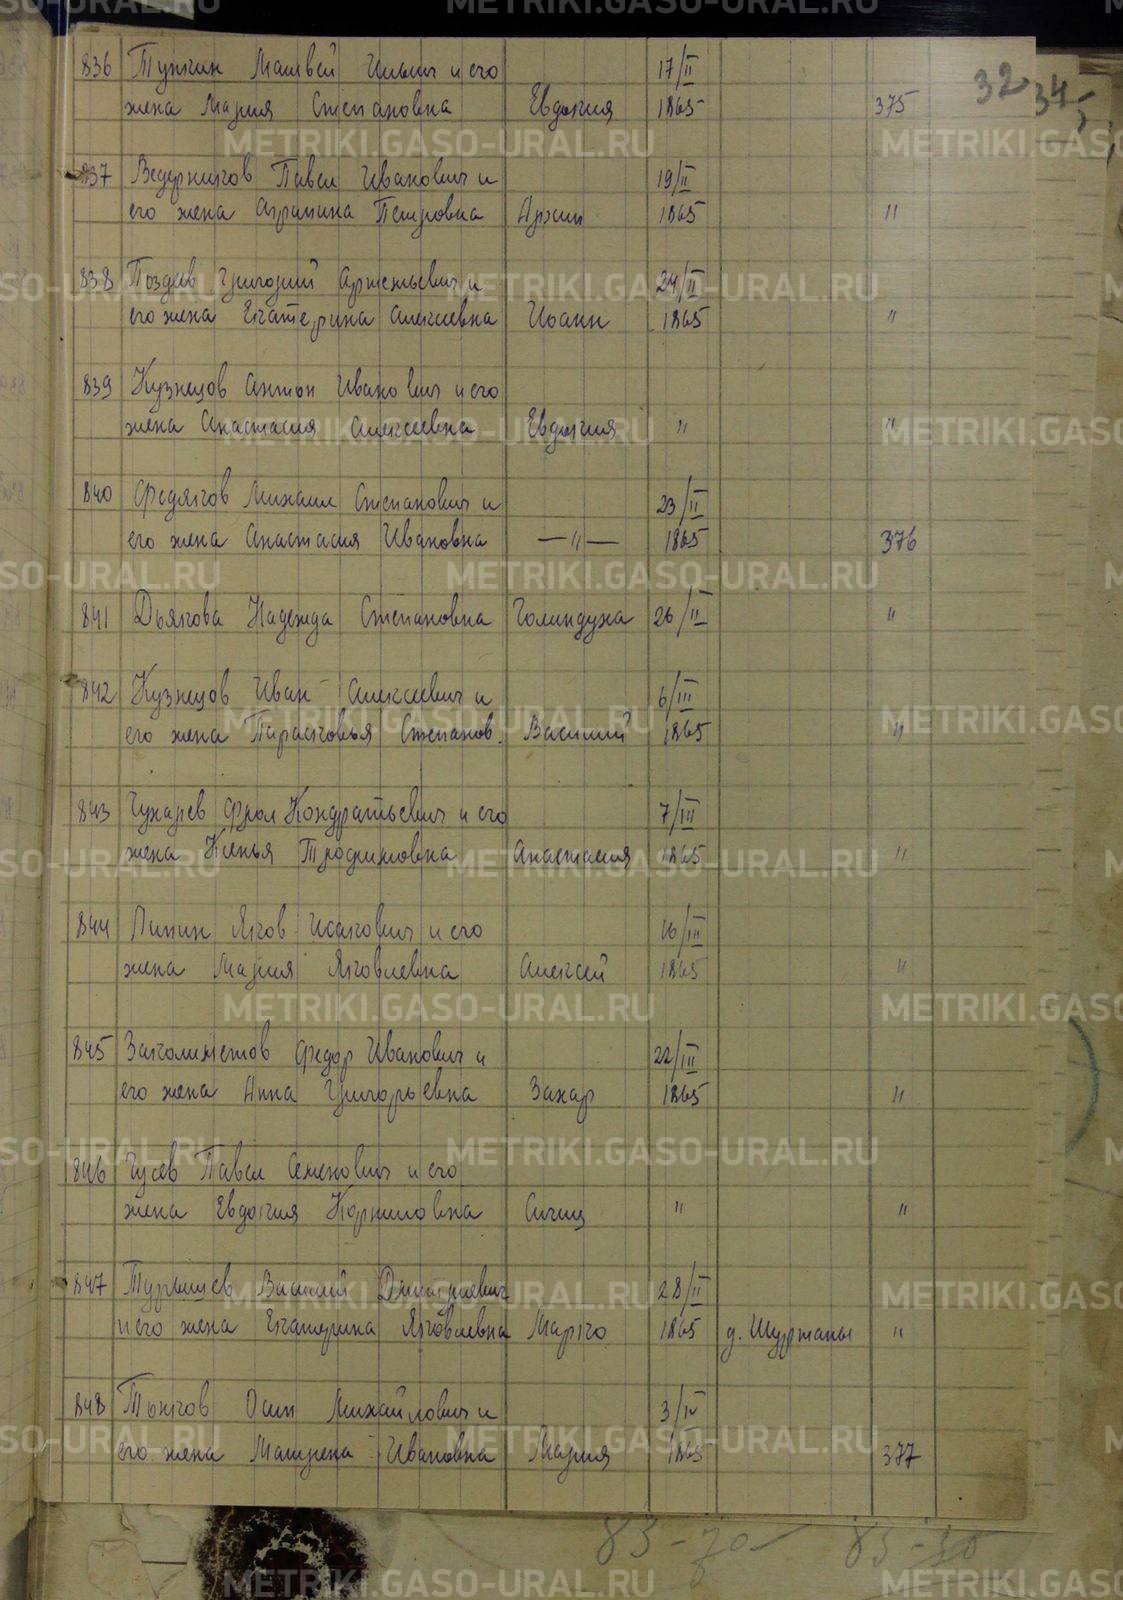 32 34
836 Тункин Матвей Ильич и его 17/II
жена Мария Степановна Евдокия 1865 375
837 Ведерников Павел Иванович и 19/II
его жена Аграпина Петровна Архип 1865 "
838 Поздев Григорий Арженьевич и 24/II
его жена Екатерина Алексеевна Иоанн 1865 "
839 Кузнецов Антон Иванович и его
жена Анастасия Алексеевна Евдокия " "
840 Федяков Михаил Степанович и 23/II
его жена Анастасия Ивановна —"— 1865 376
841 Дьякова Надежда Степановна Голиндуха 26/II "
842 Кузнецов Иван Алексеевич и 6/III
его жена Парасковья Степанов. Василий 1865 "
843 Чухарев Фрол Кондратьевич и его 7/III
жена Ксенья Трофимовна Анастасия 1865 "
844 Липин Яков Исакович и его 16/III
жена Мария Яковлевна Алексей 1865 "
845 Заколюжетов Федор Иванович и 22/III
его жена Анна Григорьевна Захар 1865 "
846 Гусев Павел Семенович и его
жена Евдокия Корниловна " "
847 Турышев Василий Дмитриевич 28/II
и его жена Екатерина Яковлевна Марко 1865 д. Шуртаны "
848 Тоньков Осип Михайлович и 3/IV
его жена Матрена Ивановна Мария 1865 377
83-70 83-30
METRIKI.GASO-URAL.RU